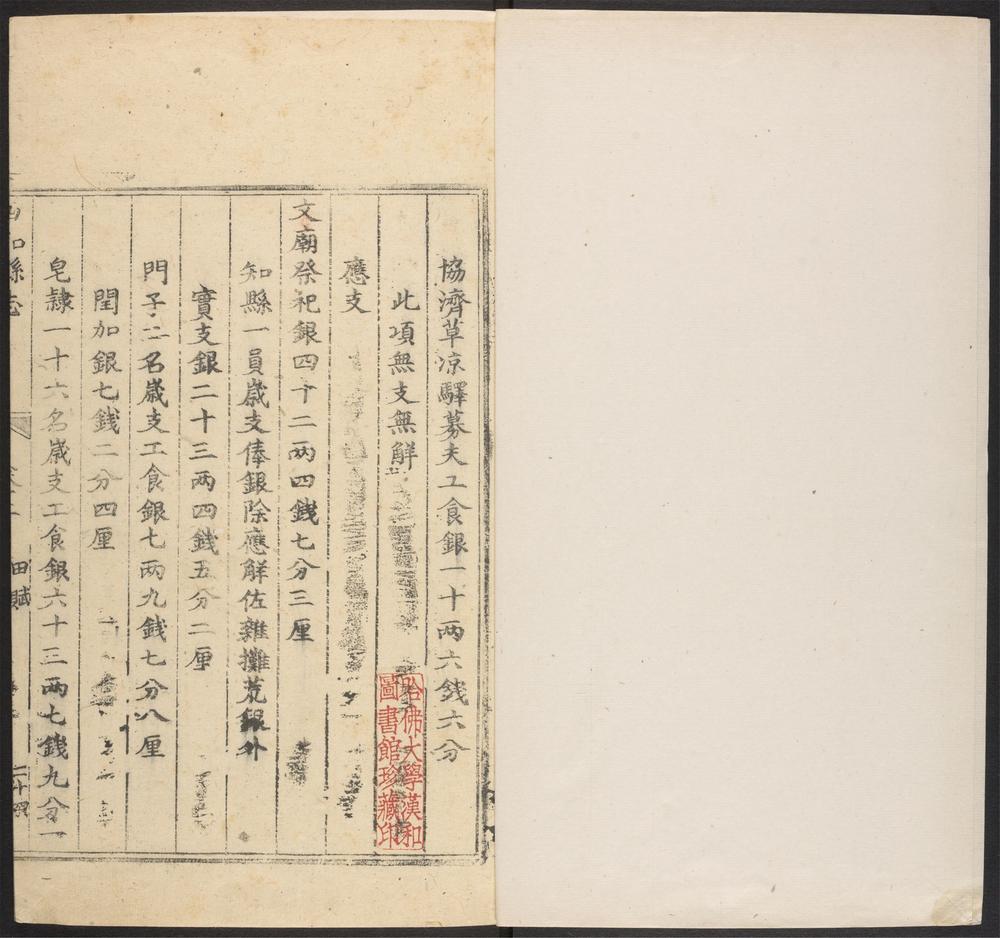 協濟草凉驛募夫工食銀一十两六錢六分
此項無支無解
應支
文廟祭祀銀四十二两四錢七分三厘
知縣一員歲支俸銀除應解佐雜攤荒銀外
實支銀二十三两四錢五分二厘
門子二名歲支工食銀七两九錢七分八厘
閏加銀七錢二分四厘
皂隷一十六名歲支工食銀六十三两七錢九分一
縣志
田賦
二十四
哈佛大學漢和
圖書館珍藏印